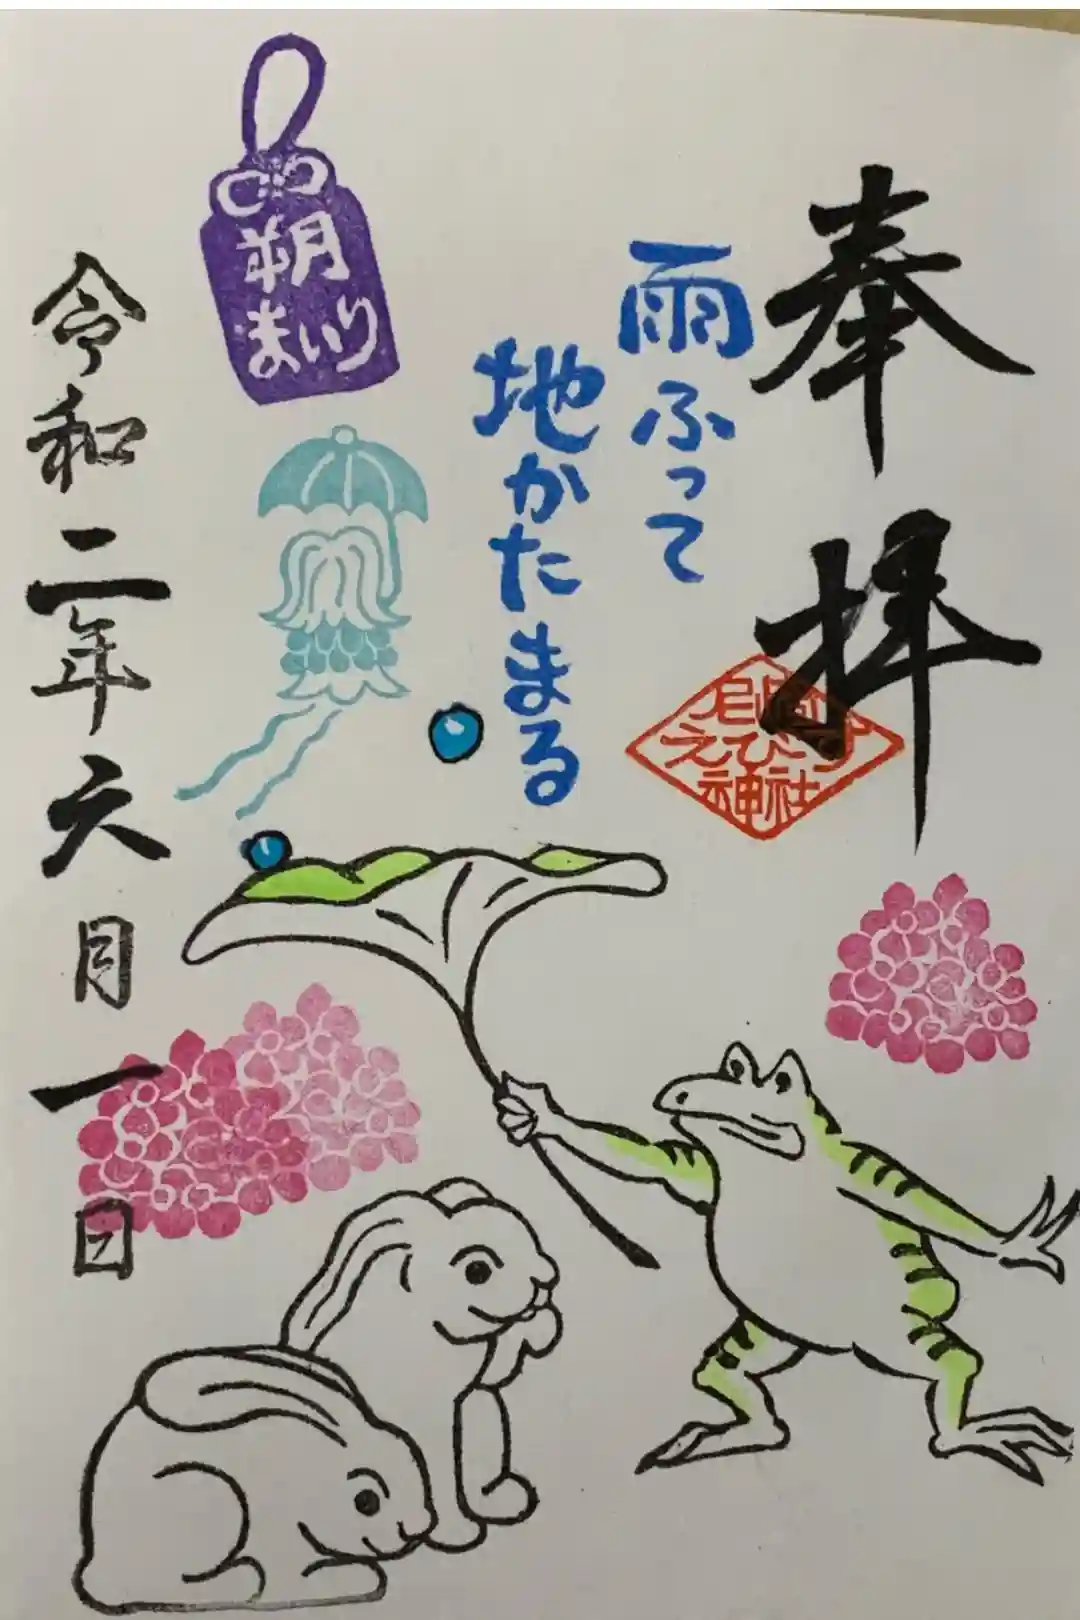 奉拝
雨ふって
地かたまる
朔
まいり
令和二年六月一日
神社